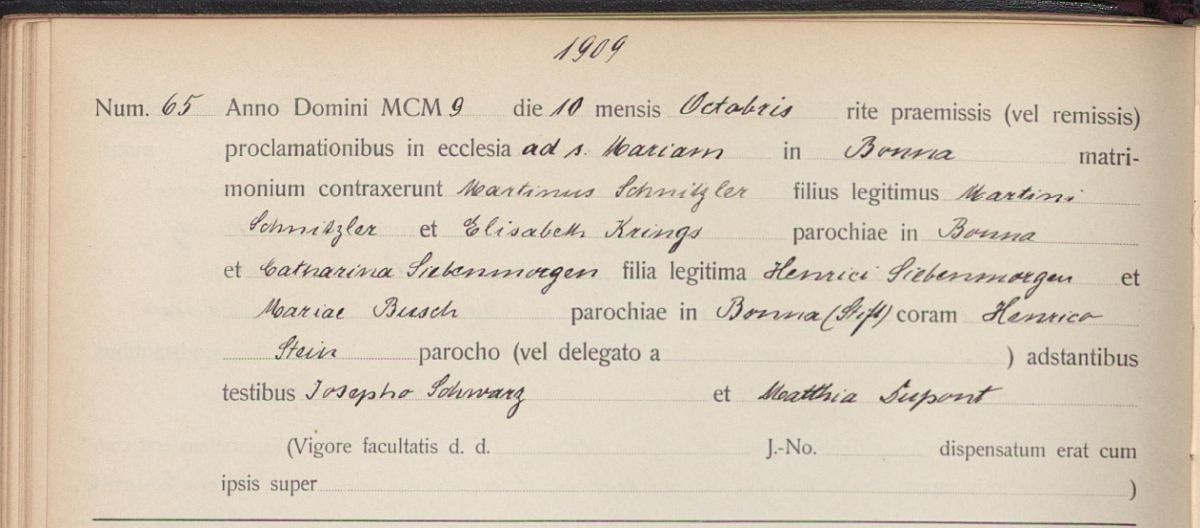 1909
Num. 65 Anno Domini MCM 9 die 10 mensis Octobris rite praemissis (vel remissis)
proclamationibus in ecclesia ad s. Mariam in Bonna matri-
monium contraxerunt Martinus Schnitzler filius legitimus Martini
Schnitzler et Elisabeth Krings parochiae in Bonna
et Catharina Siebenmorgen filia legitima Henrici Siebenmorgen et
Mariae Busch parochiae in Bonna (Stift) coram Henrico
Stein parocho (vel delegato a ) adstantibus
testibus Josepho Schwarz et Matthia Dupont
(Vigore facultatis d. d. J.-No. dispensatum erat cum
ipsis super )